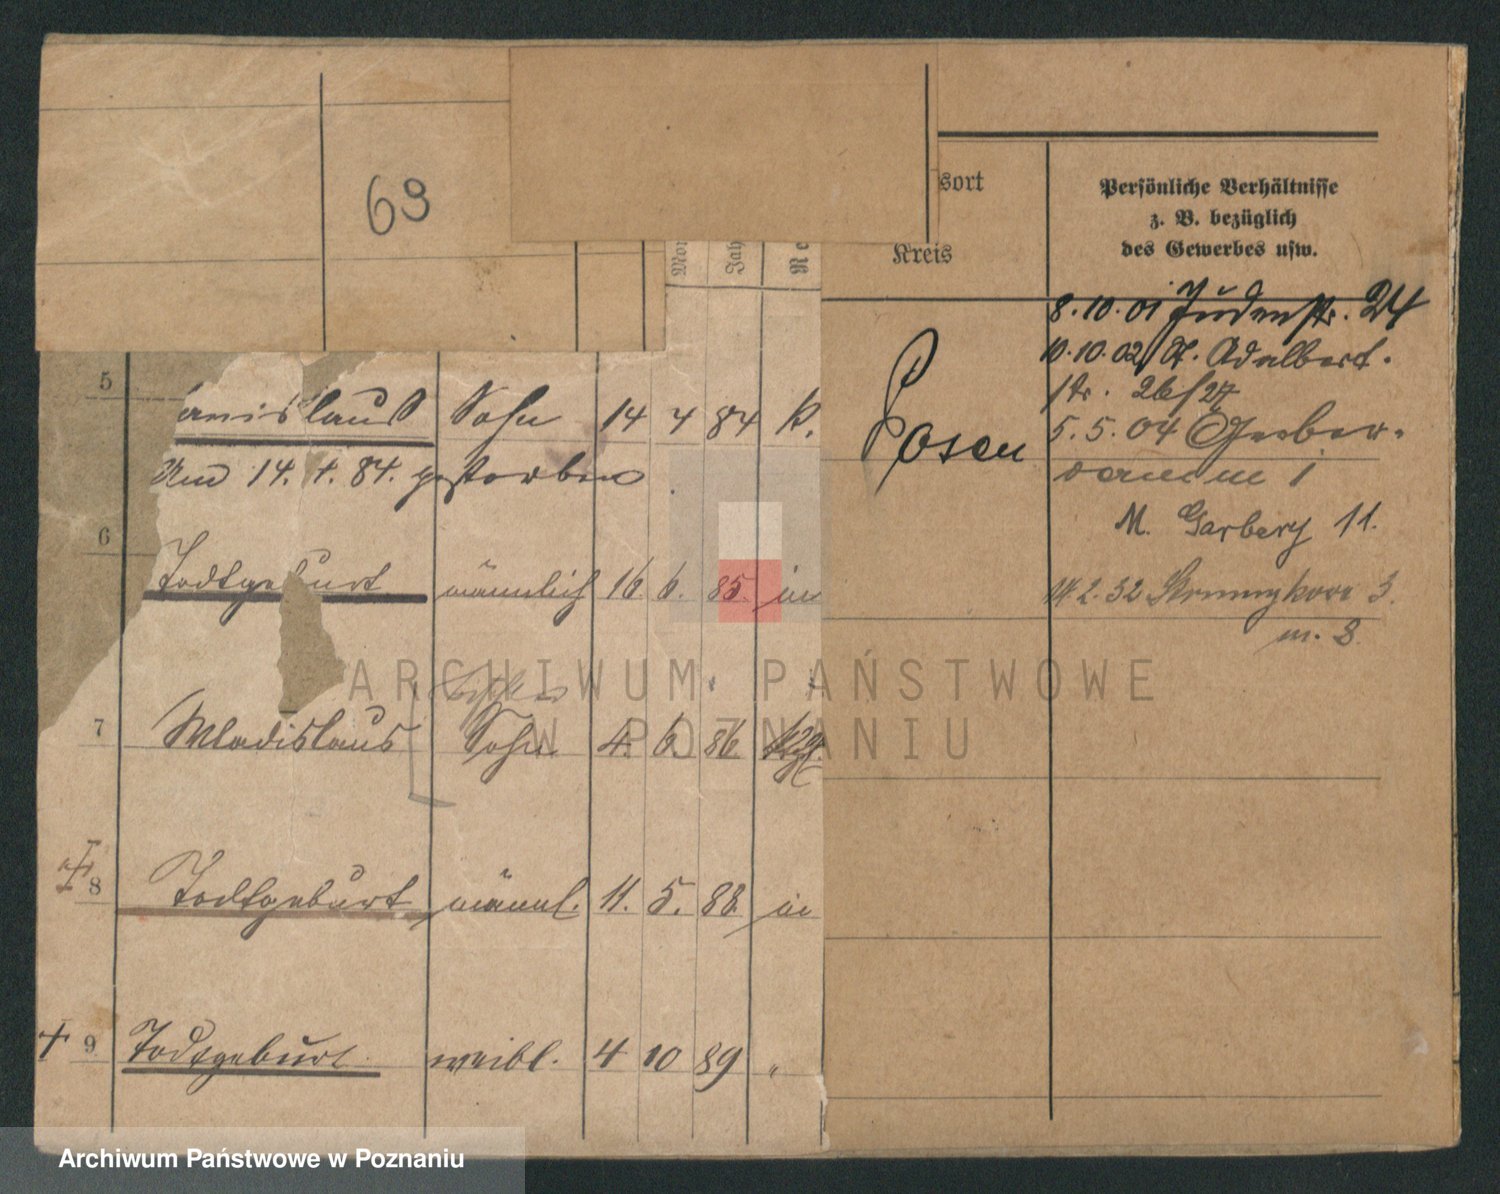 63
sort
Kreis
Persönliche Verhältnisse
z. B. bezüglich
des Gewerbes usw.
Mon
Jah
Re
5 anislaus Sohn 14 4 84 k.
am 14. 4. 84. gestorben
6 Todtgeburt männlich 16 6. 85. in
7 Wladislaus Sohn 4. 6. 86
8 Todtgeburt männl. 11. 5. 88 in
9 Todtgeburt weibl. 4 10 89 "
Posen
8.10.01 Judenstr. 24
10.10.02 St. Adalbert-
str. 26/27
5.5.04 Gerber-
damm 1
M. Garbery 11.
14.2.32 Strumykowa 3.
m. 8.
ARCHIWUM PAŃSTWOWE
W POZNANIU
Archiwum Państwowe w Poznaniu